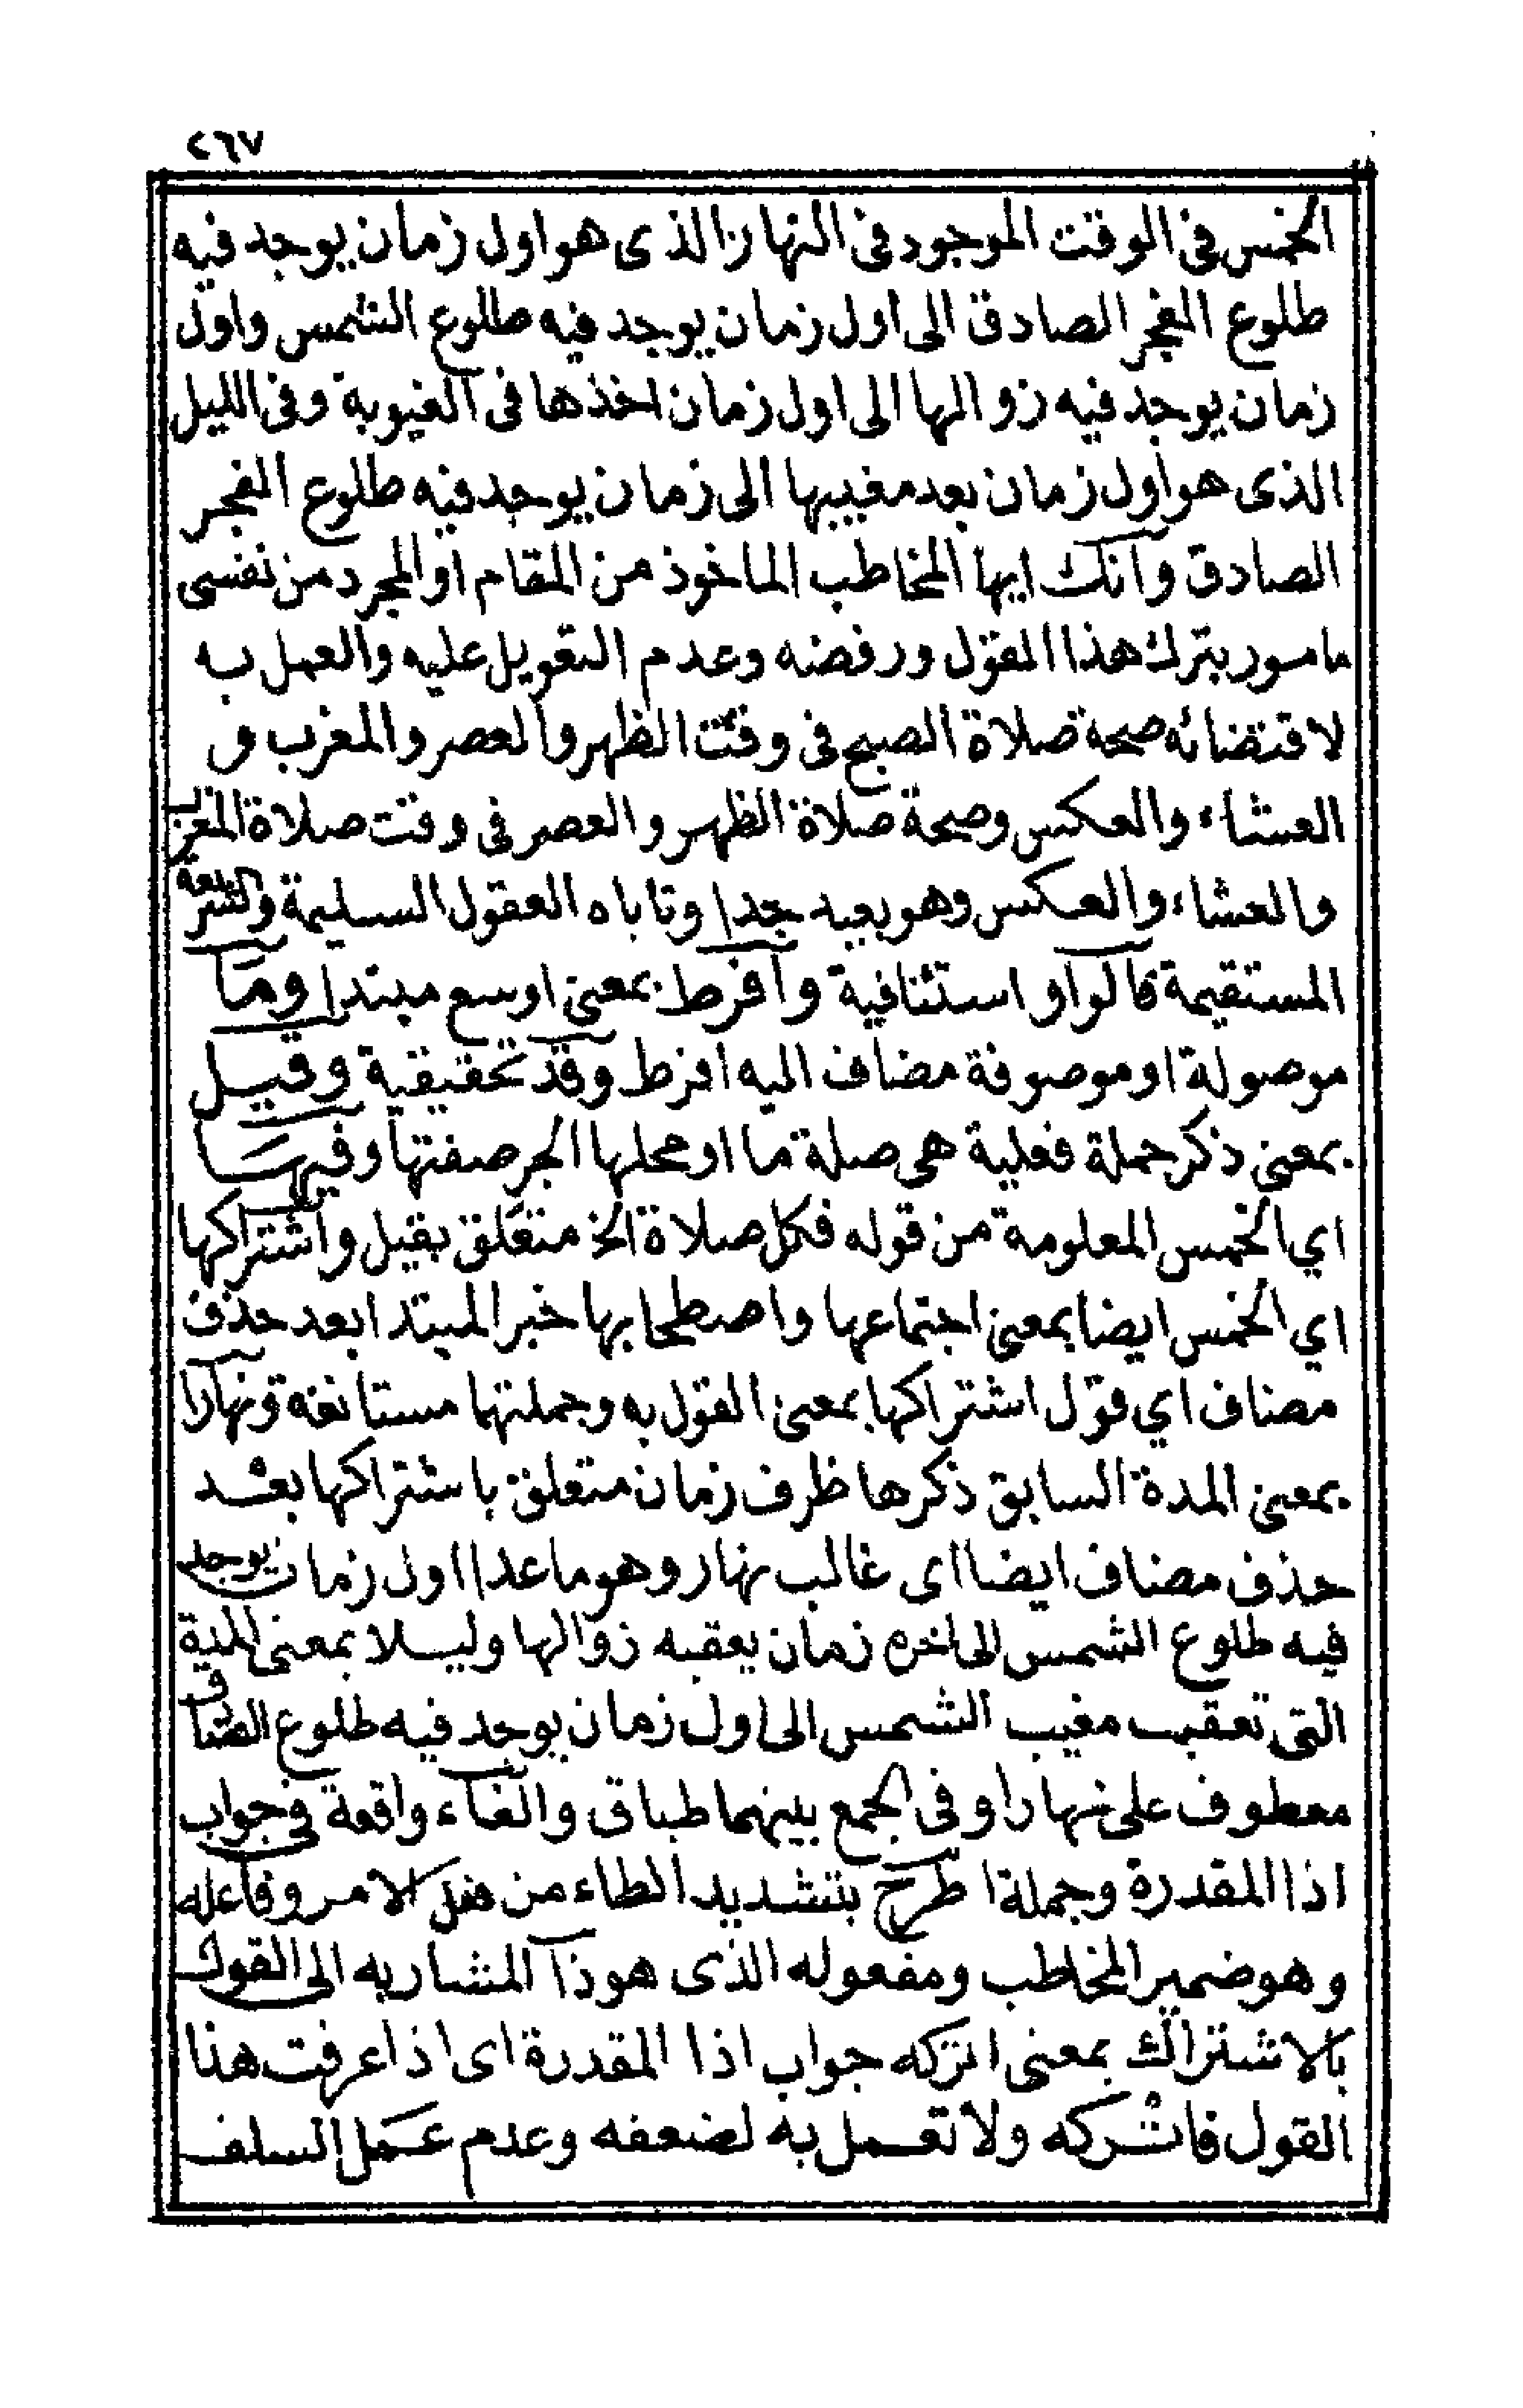 ٢٦٧
الخمس في الوقت الموجود في النهار الذي هو اول زمان يوجد فيه
طلوع الفجر الصادق الى اول زمان يوجد فيه طلوع الشمس واول
زمان يوجد فيه زوالها الى اول زمان اخذها في الغيوبة وفي الليل
الذى هو اول زمان بعد مغيبها الى زمان يوجد فيه طلوع الفجر
الصادق وانك ايها المخاطب الماخوذ من المقام او المجرد من نفسى
مامور بترك هذا القول ورفضه وعدم التعويل عليه والعمل به
لاقتضائه صحة صلاة الصبح في وقت الظهر والعصر والمغرب و
العشاء والعكس وصحة صلاة الظهر والعصر في وقت صلاة المغرب
والعشاء والعكس وهو بعيد جدا وتاباه العقول السليمة والشريعة
المستقيمة فالواو استئنافية وافرط بمعنى اوسع مبتدا وما
موصولة او موصوفة مضاف اليه افرط وقد تحقيقية وقيل
بمعنى ذكر جملة فعلية هى صلة ما او محلها الجر صفتها وفيها
اي الخمس المعلومة من قوله فكل صلاة الخ متعلق بقيل واشتراكها
اي الخمس ايضا بمعنى اجتماعها واصطحابها خبر المبتدا بعد حذف
مضاف اي قول اشتراكها بمعنى القول به وجملتها مستانفة ونهارا
بمعنى المدة السابق ذكرها ظرف زمان متعلق باشتراكها بعد
حذف مضاف ايضا اى غالب نهار وهو ماعدا اول زمان يوجد
فيه طلوع الشمس الى اخره زمان يعقبه زوالها وليلا بمعنى المدة
التى تعقب مغيب الشمس الى اول زمان يوجد فيه طلوع الصادق
معطوف على نهارا وفى الجمع بينهما طباق والفاء واقعة في جواب
اذا المقدرة وجملة اطرح بتشديد الطاء من فعل الامر وفاعله
وهو ضمير المخاطب ومفعوله الذى هو ذا المشار به الى القول
بالاشتراك بمعنى اتركه جواب اذا المقدرة اى اذا عرفت هذا
القول فاتركه ولا تعمل به لضعفه وعدم عمل السلف